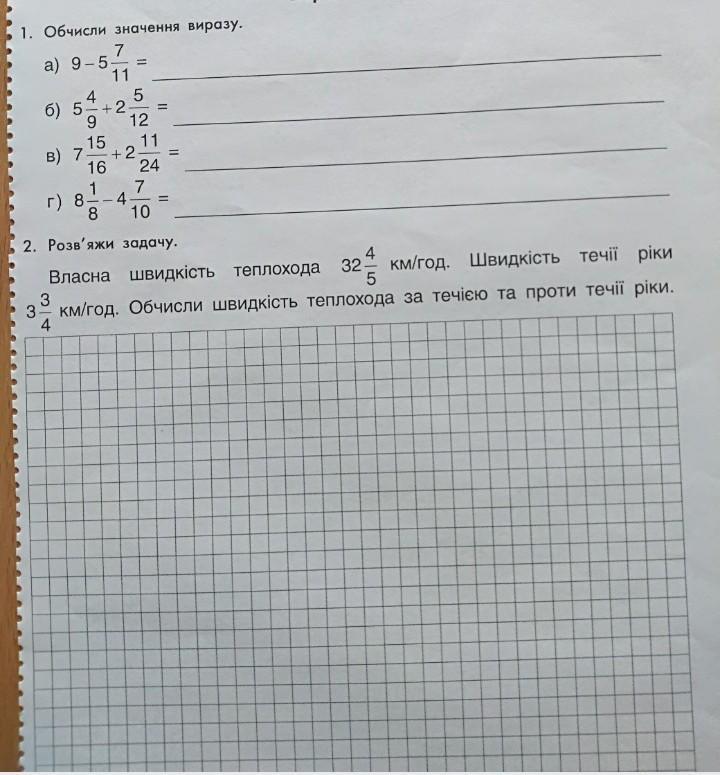 1. Обчисли значення виразу.
а) 9 − 5 7/11 =
б) 5 4/9 + 2 5/12 =
в) 7 15/16 + 2 11/24 =
г) 8 1/8 − 4 7/10 =
2. Розв'яжи задачу.
Власна швидкість теплохода 32 4/5 км/год. Швидкість течії ріки
3 3/4 км/год. Обчисли швидкість теплохода за течією та проти течії ріки.